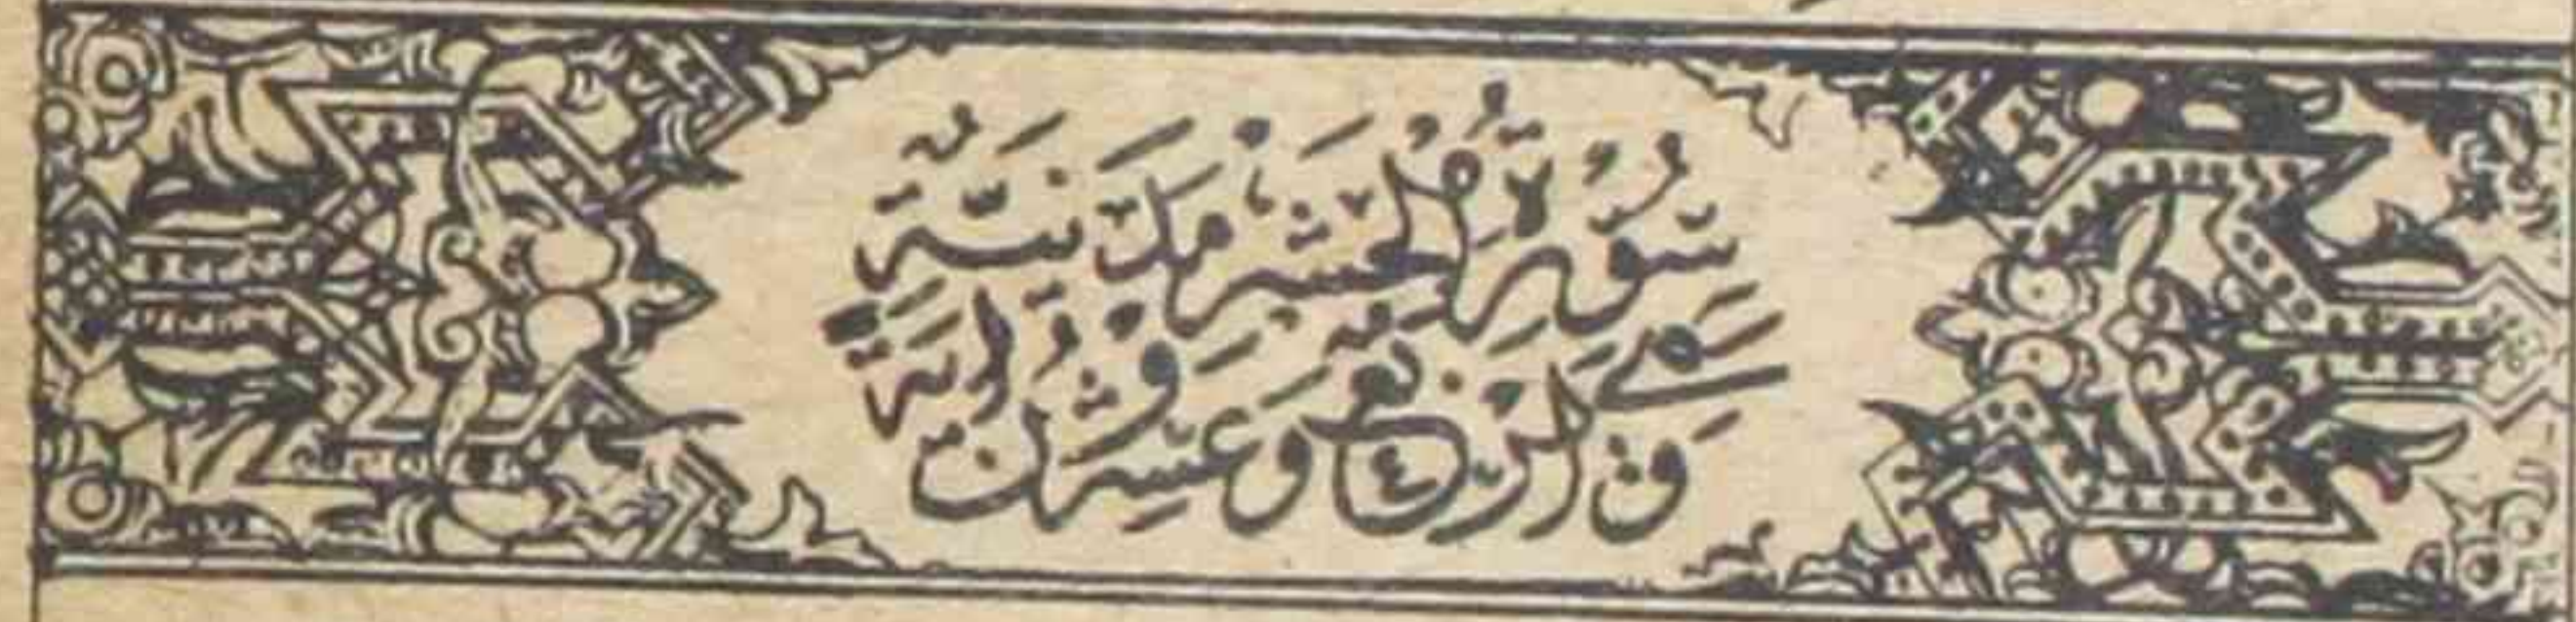 سُوْرَةُ الْحَشْرِ مَدَنِيَّةٌ
وَهِيَ اَرْبَعٌ وَعِشْرُوْنَ اٰيَةً